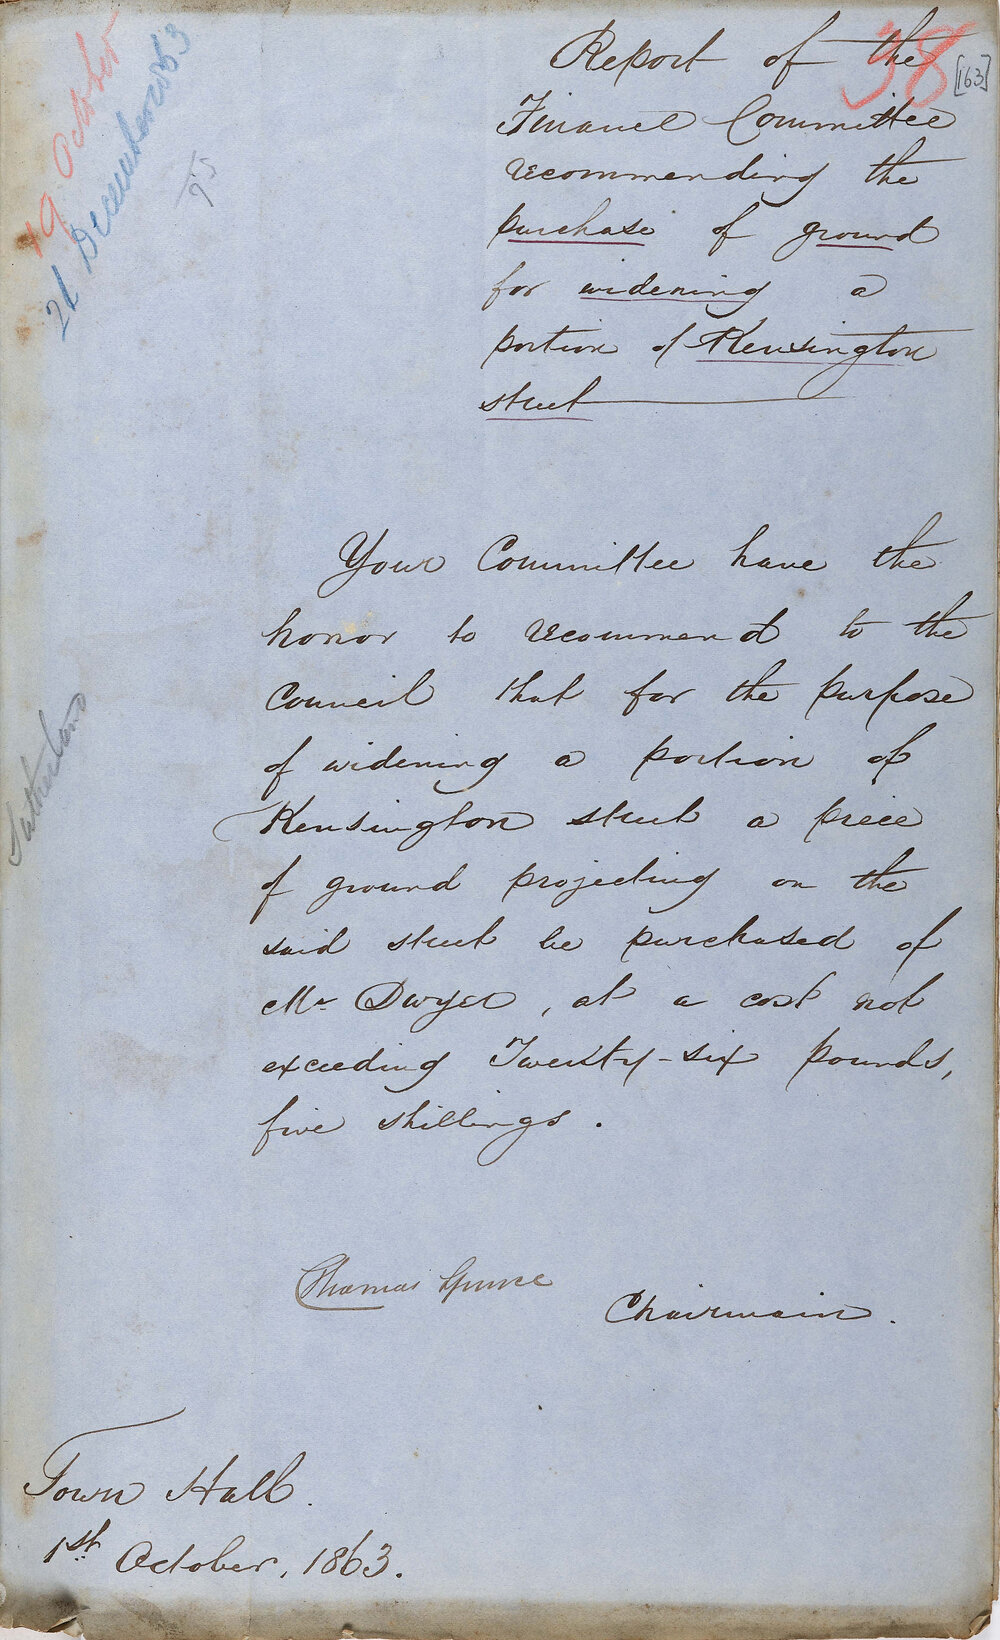 19 October
21 December 1863
38
[163]
95
Report of the
Finance Committee
recommending the
purchase of ground
for widening a
portion of Kensington
street
Your Committee have the
honor to recommend to the
Council that for the purpose
of widening a portion of
Kensington street a piece
of ground projecting on the
said street be purchased of
Mr Dwyer, at a cost not
exceeding Twenty-six pounds,
five shillings.
Sutherland
Thomas Spence
Chairman.
Town Hall.
1st October, 1863.